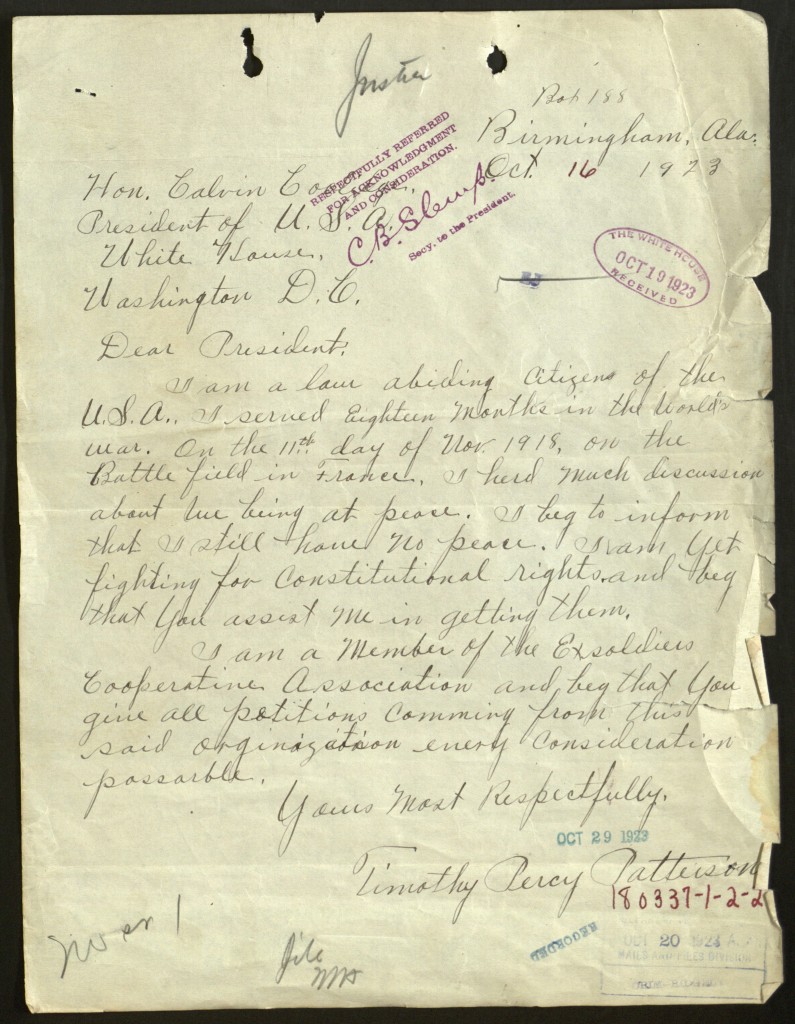 Justice
Box 188
Birmingham, Ala.
Oct. 16 1923
RESPECTFULLY REFERRED
FOR ACKNOWLEDGMENT
AND CONSIDERATION.
C.B. Slemp.
Secy. to the President.
THE WHITE HOUSE
OCT 19 1923
RECEIVED
Hon. Calvin
President of U.S.A.
White House,
Washington D.C.
Dear President:
I am a law abiding Citizen of the
U.S.A., I served Eighteen Months in the World's
war. On the 11th day of Nov. 1918, on the
Battle field in France, I herd Much discussion
about we being at peace. I beg to inform
that I still have No peace. I am Yet
fighting for Constitutional rights and beg
that You assist Me in getting them.
I am a Member of the Exsoldiers
Cooperative Association and beg that You
give all petitions Comming from this
said orginization every Consideration
possarble.
Yours Most Respectfully,
OCT 29 1923
Timothy Percy Patterson
180337-1-2-2
RECORDED
File
OCT 20 1923 A.M.
MAILS AND FILES DIVISION